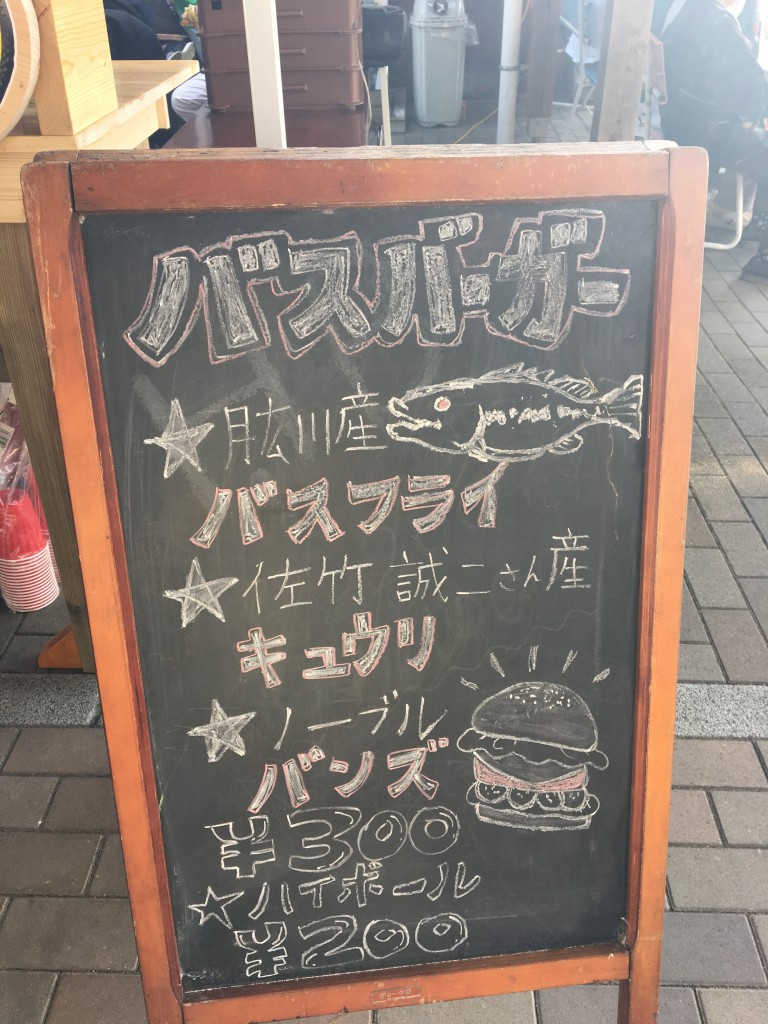 バスバーガー
☆肱川産
バスフライ
☆佐竹 誠二さん産
キュウリ
☆ノーブル
バンズ
¥300
☆ハイボール
¥200